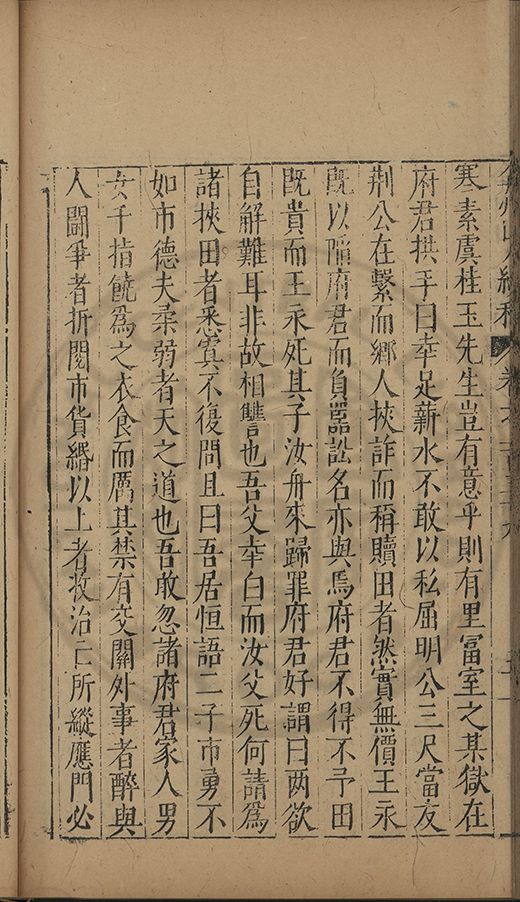 寒素虞桂玉先生豈有意乎則有里冨室之某獄在
府君拱手曰幸足薪水不敢以私屈明公三尺當友
荆公在繫而鄉人挾詐而稱贖田者然實無價王永
既以陷府君而負嚚訟名亦與焉府君不得不予田
既貴而王永死其子汝舟來歸罪府君好謂曰两欲
自解難耳非故相讐也吾父幸白而汝父死何請爲
諸挾田者悉寘不復問且曰吾居恒語二子市勇不
如市德夫柔弱者天之道也吾敢忽諸府君家人男
女千指饒爲之衣食而厲其禁有交關外事者醉與
人鬪爭者折閱市貨緡以上者牧治亡所縱應門必